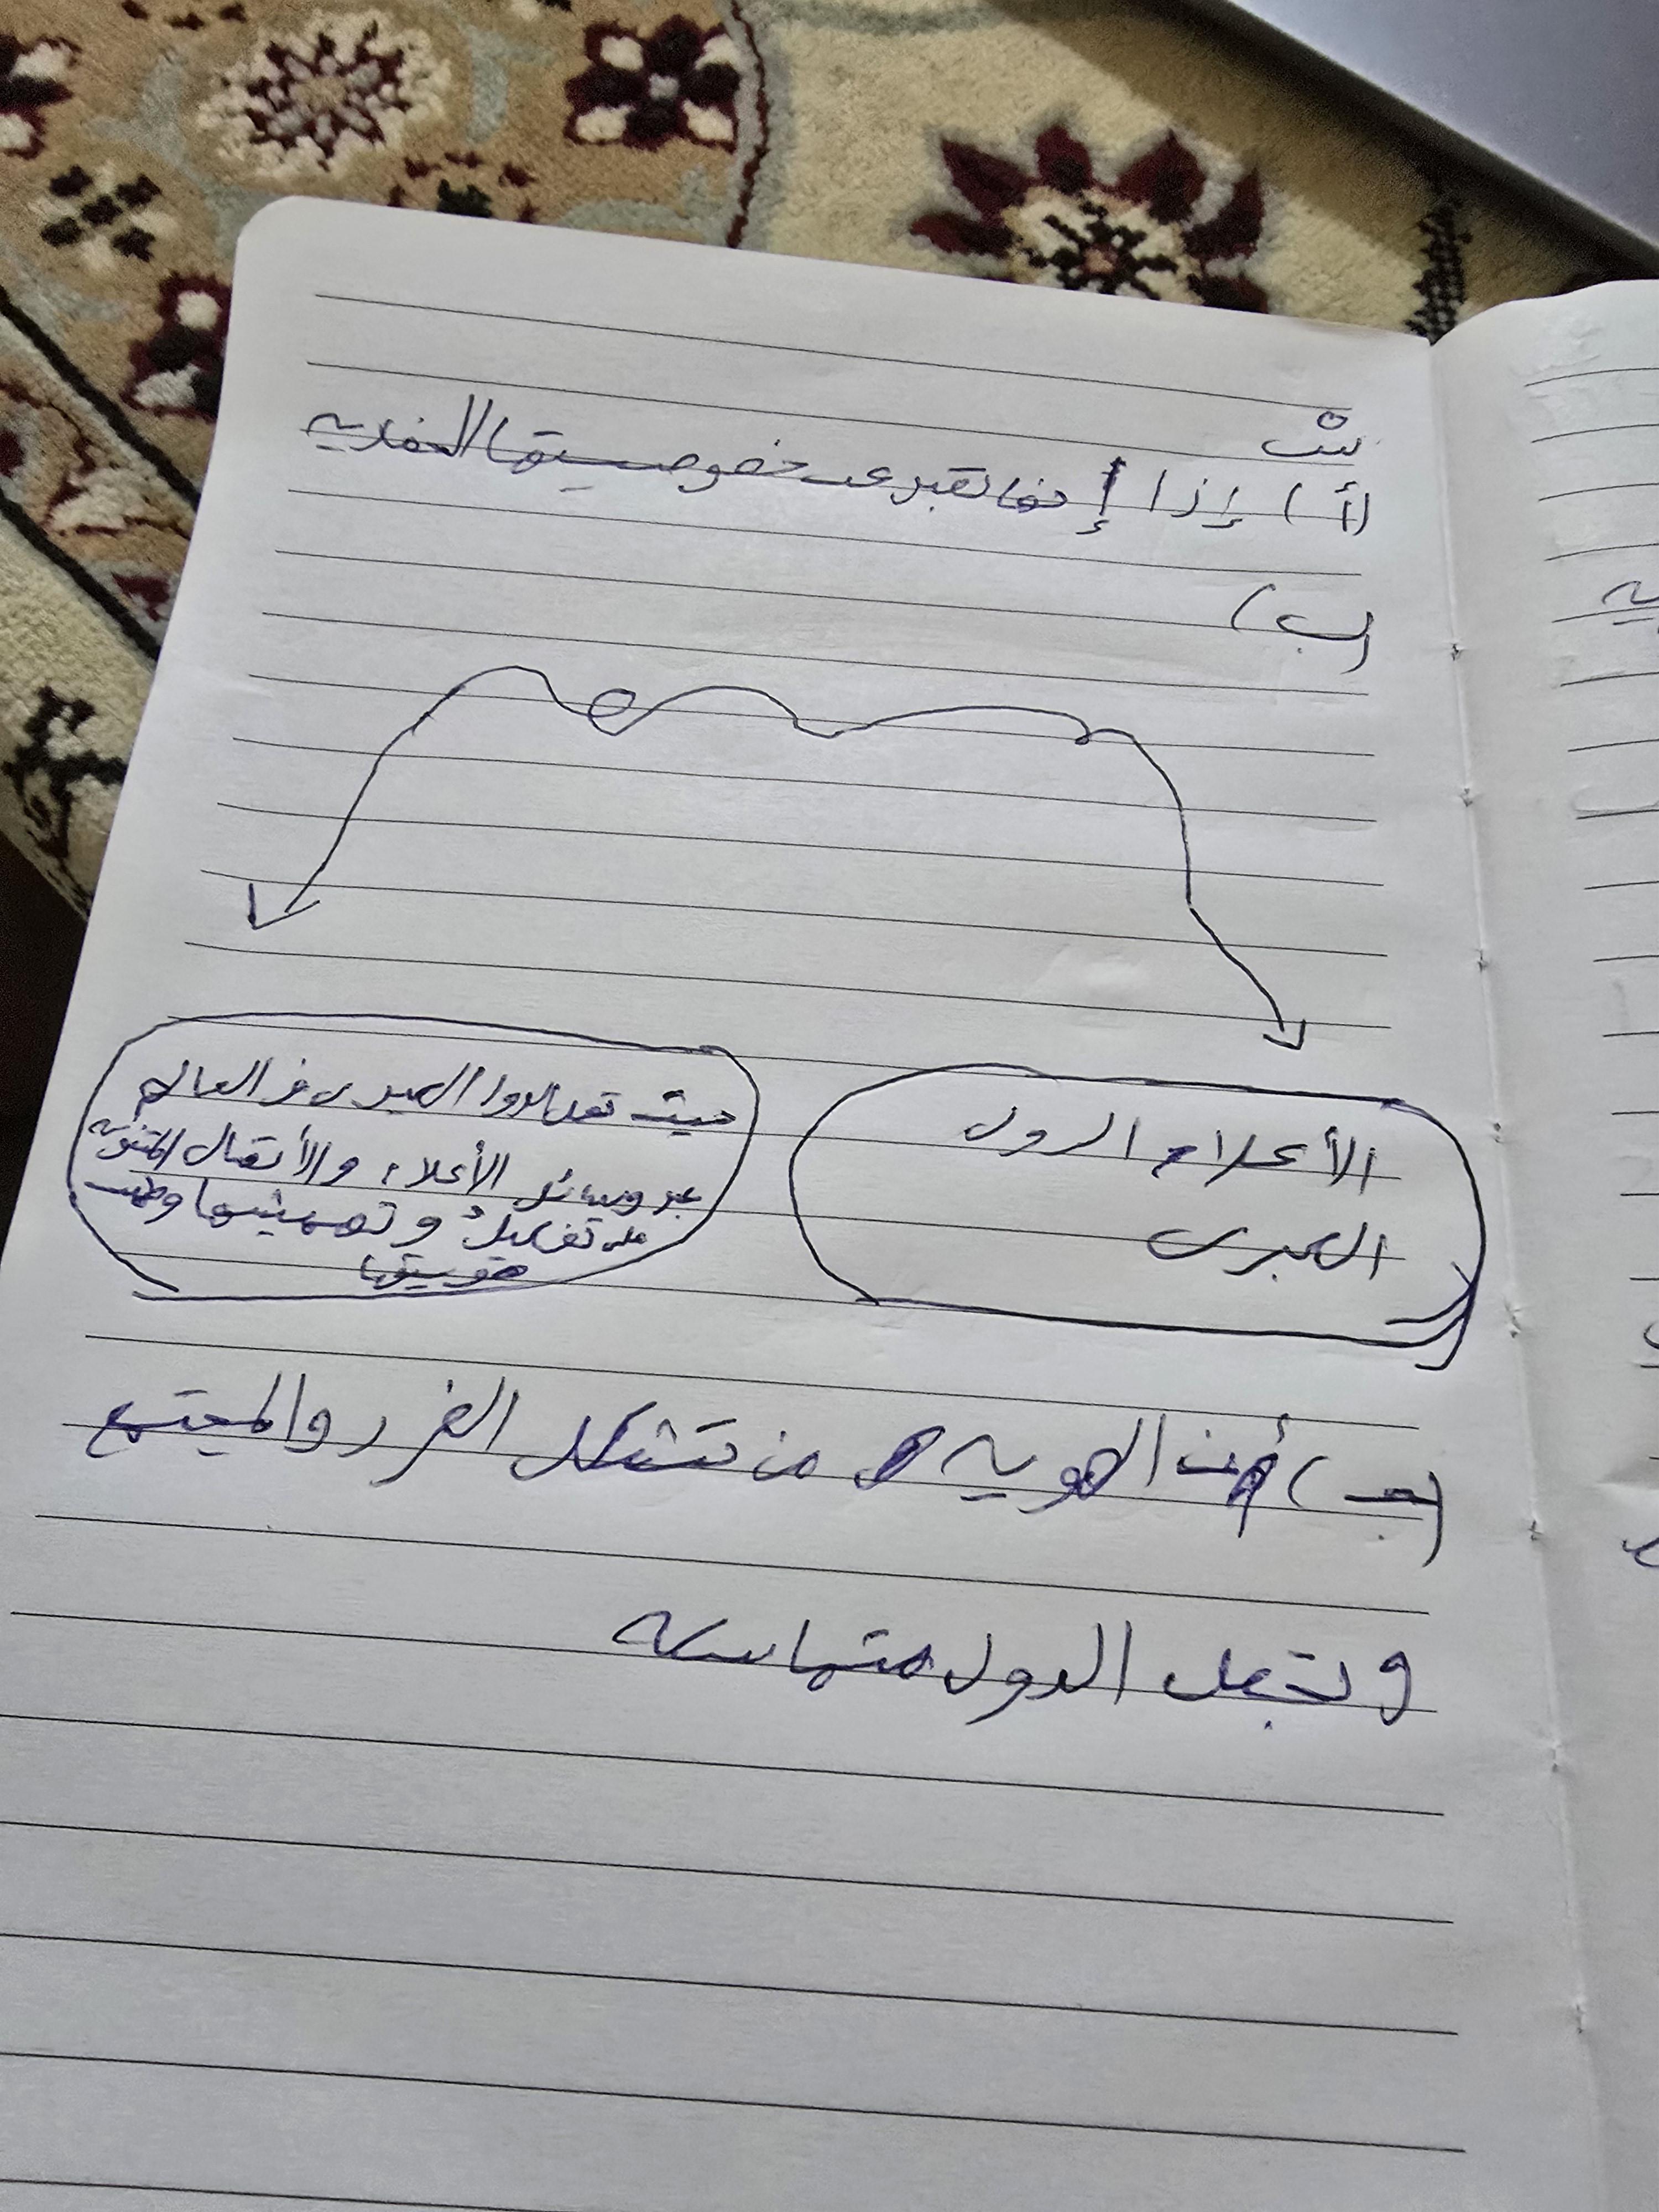 (أ) إذا إنها تعبر عن خصوصيتها الحضاريه
(ب)
الأعلام الدول
الكبرى
حيث تعمل الدول الكبرى في العالم
عبر وسائل الأعلام والأتصال المتنوعه
على تفكيك و تهميشها وطمس
هويتها
(جـ) أمن الهويه من تشكل الفرد والمجتمع
وتجعل الدول متماسكه